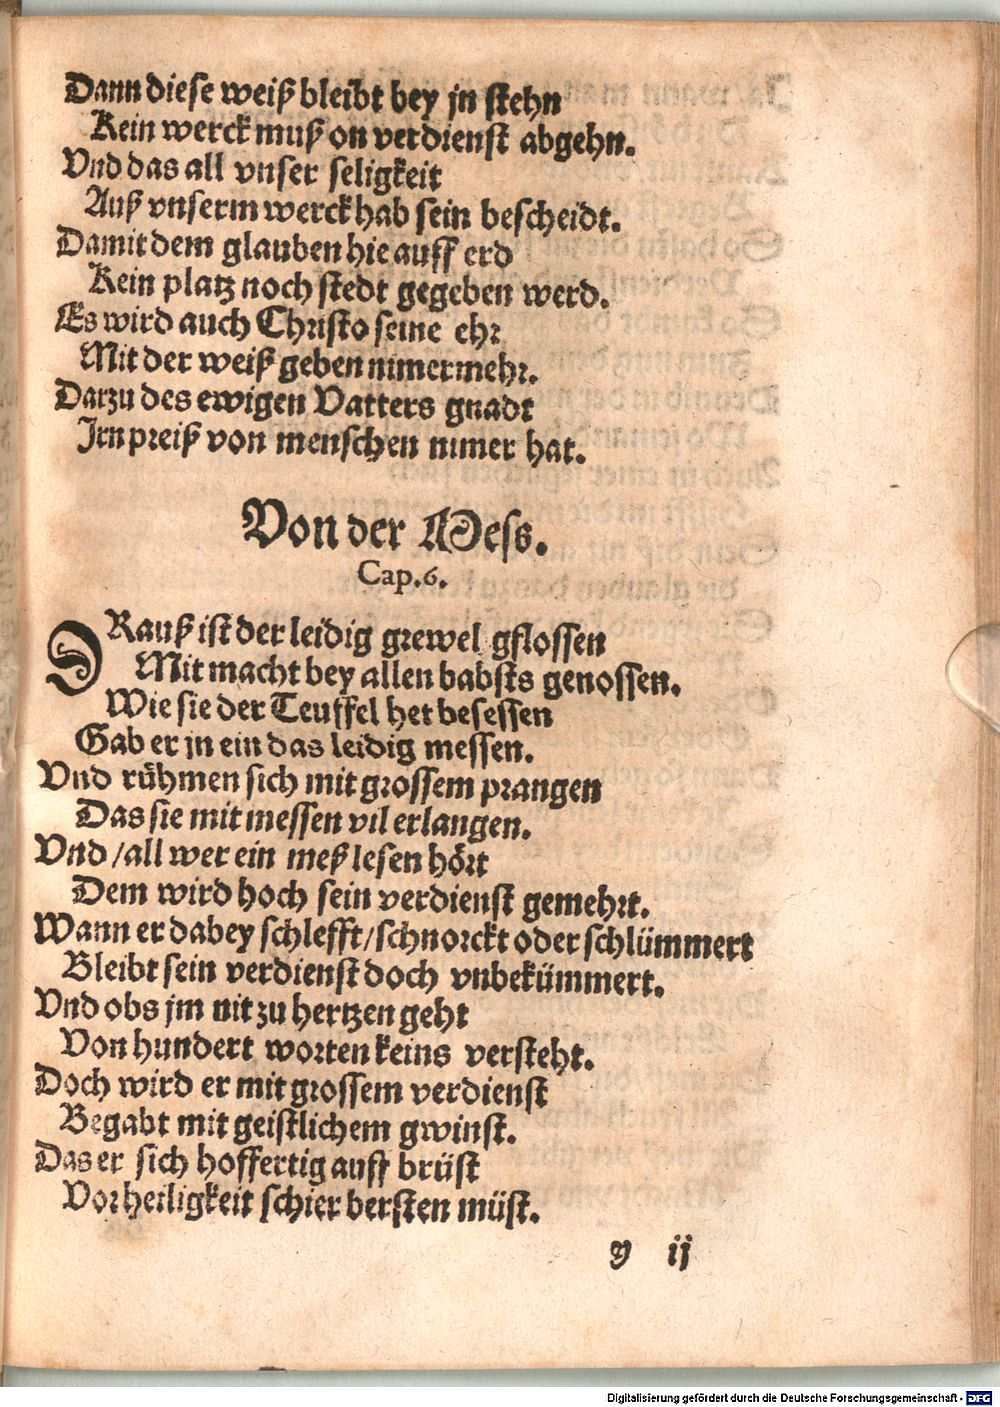 Dann diese weiß bleibt bey jn stehn
Kein werck muß on verdienst abgehn.
Vnd das all vnser seligkeit
Auß vnserm werck hab sein bescheidt.
Damit dem glauben hie auff erd
Kein platz noch stedt gegeben werd.
Es wird auch Christo seine ehr
Mit der weiß geben nimermehr.
Darzu des ewigen Vatters gnadt
Irn preiß von menschen nimer hat.
Von der Mess.
Cap. 6.
DRauß ist der leidig grewel gflossen
Mit macht bey allen babsts genossen.
Wie sie der Teuffel het besessen
Gab er jn ein das leidig messen.
Vnd rühmen sich mit grossem prangen
Das sie mit messen vil erlangen.
Vnd/all wer ein meß lesen hört
Dem wird hoch sein verdienst gemehrt.
Wann er dabey schlefft/schnorckt oder schlümmert
Bleibt sein verdienst doch vnbekümmert.
Vnd obs jm nit zu hertzen geht
Von hundert worten keins versteht.
Doch wird er mit grossem verdienst
Begabt mit geistlichem gwinst.
Das er sich hoffertig auff brüst
Vor heiligkeit schier bersten müst.
y ij
Digitalisierung gefördert durch die Deutsche Forschungsgemeinschaft - DFG